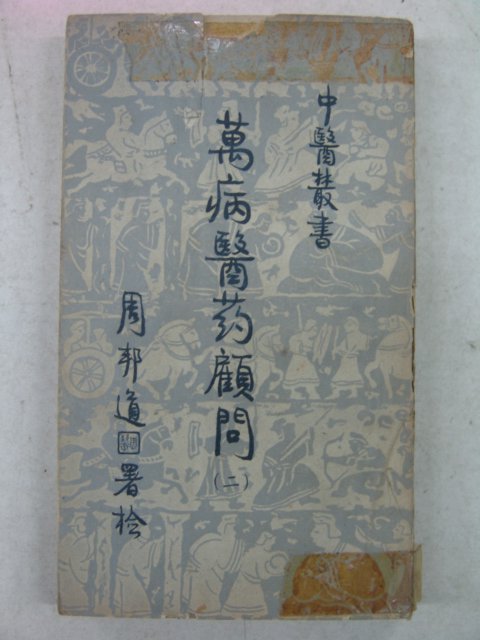 中醫叢書
萬病醫药顧問(二)
周邦道署检